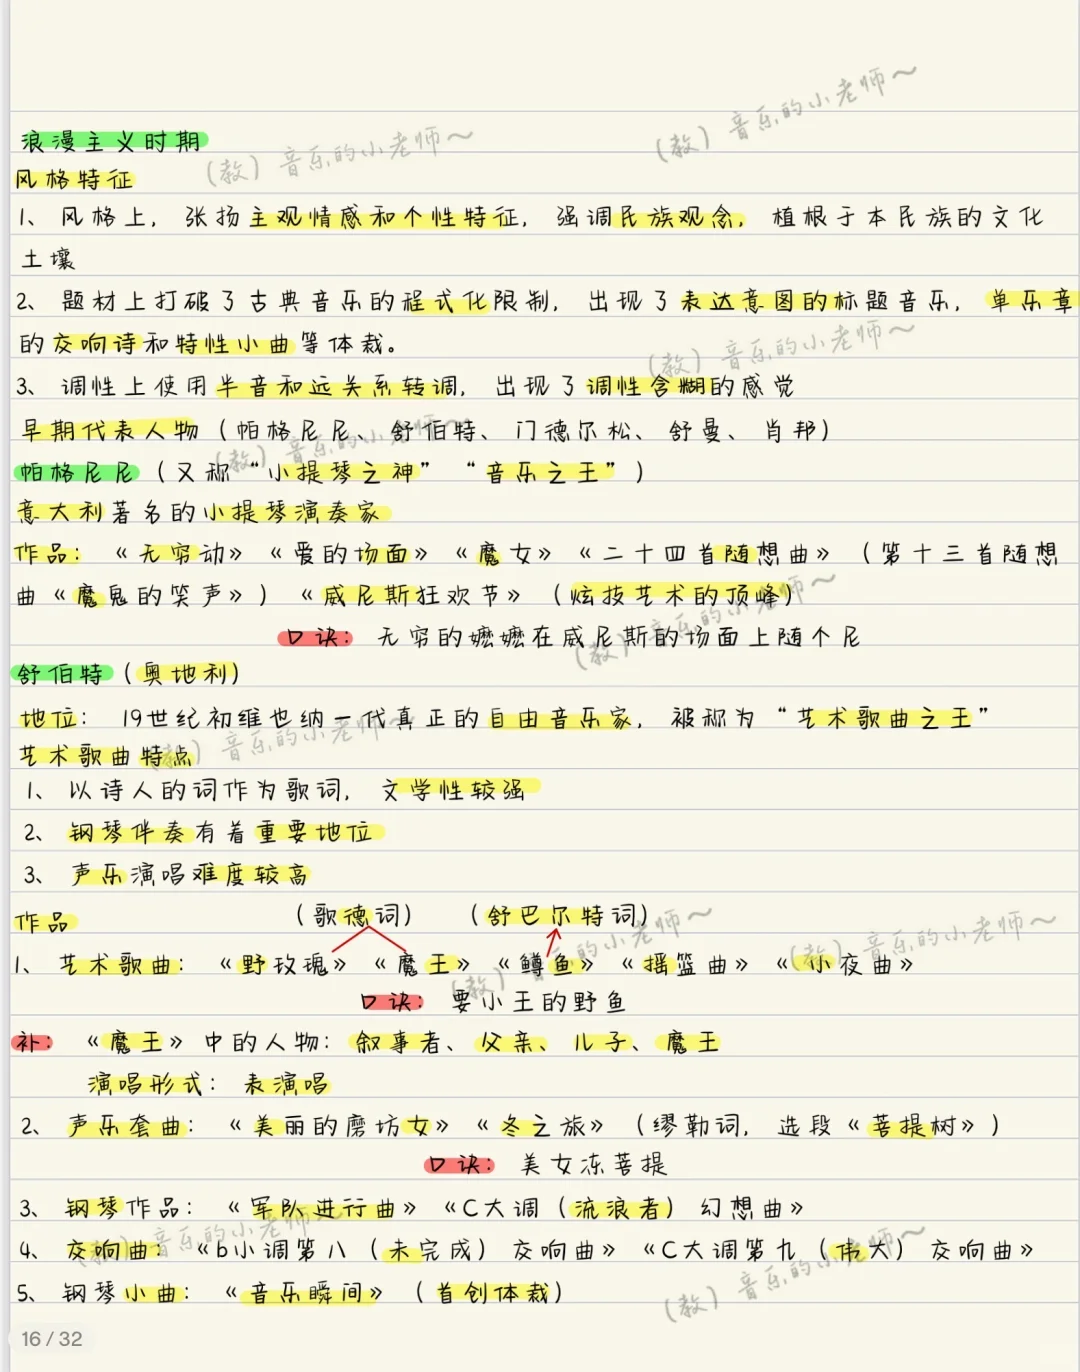 浪漫主义时期
风格特征
1、风格上，张扬主观情感和个性特征，强调民族观念，植根于本民族的文化
土壤
2、题材上打破了古典音乐的程式化限制，出现了表达意图的标题音乐，单乐章
的交响诗和特性小曲等体裁。
3、调性上使用半音和远关系转调，出现了调性含糊的感觉
早期代表人物（帕格尼尼、舒伯特、门德尔松、舒曼、肖邦）
帕格尼尼（又称“小提琴之神”“音乐之王”）
意大利著名的小提琴演奏家
作品：《无穷动》《爱的场面》《魔女》《二十四首随想曲》（第十三首随想
曲《魔鬼的笑声》）《威尼斯狂欢节》（炫技艺术的顶峰）
口诀：无穷的嬷嬷在威尼斯的场面上随个尼
舒伯特（奥地利）
地位：19世纪初维也纳一代真正的自由音乐家，被称为“艺术歌曲之王”
艺术歌曲特点
1、以诗人的词作为歌词，文学性较强
2、钢琴伴奏有着重要地位
3、声乐演唱难度较高
作品（歌德词）（舒巴尔特词）
1、艺术歌曲：《野玫瑰》《魔王》《鳟鱼》《摇篮曲》《小夜曲》
口诀：要小王的野鱼
补：《魔王》中的人物：叙事者、父亲、儿子、魔王
演唱形式：表演唱
2、声乐套曲：《美丽的磨坊女》《冬之旅》（缪勒词，选段《菩提树》）
口诀：美女冻菩提
3、钢琴作品：《军队进行曲》《C大调（流浪者）幻想曲》
4、交响曲：《b小调第八（未完成）交响曲》《C大调第九（伟大）交响曲》
5、钢琴小曲：《音乐瞬间》（首创体裁）
16 / 32
（教）音乐的小老师～
（教）音乐的小老师～
（教）音乐的小老师～
（教）音乐的小老师～
（教）音乐的小老师～
（教）音乐的小老师～
（教）音乐的小老师～
（教）音乐的小老师～
（教）音乐的小老师～
（教）音乐的小老师～